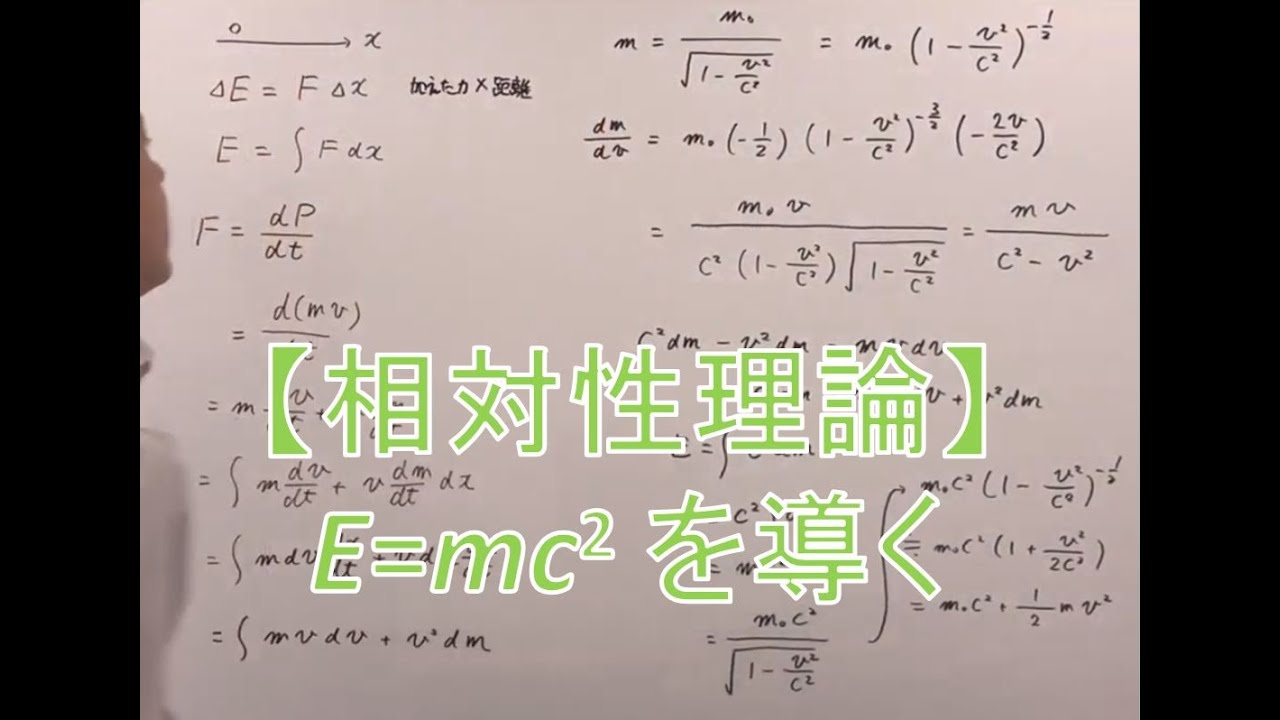 0
x
ΔE = F Δx 加えた力×距離
E = ∫ F dx
F = dP/dt
= d(mv)/
= m
= ∫ m dv/dt + v dm/dt dx
= ∫ m dv
= ∫ m v dv + v² dm
m = m₀/√(1 - v²/c²) = m₀ (1 - v²/c²)^(-1/2)
dm/dv = m₀ (-1/2) (1 - v²/c²)^(-3/2) (-2v/c²)
= m₀ v/(c² (1 - v²/c²) √(1 - v²/c²)) = m v/(c² - v²)
c² dm - v² dm = m v dv
v + v² dm
= m₀ c²/√(1 - v²/c²)
m₀ c² (1 - v²/c²)^(-1/2)
≒ m₀ c² (1 + v²/2c²)
= m₀ c² + 1/2 m v²
【相対性理論】
E=mc² を導く